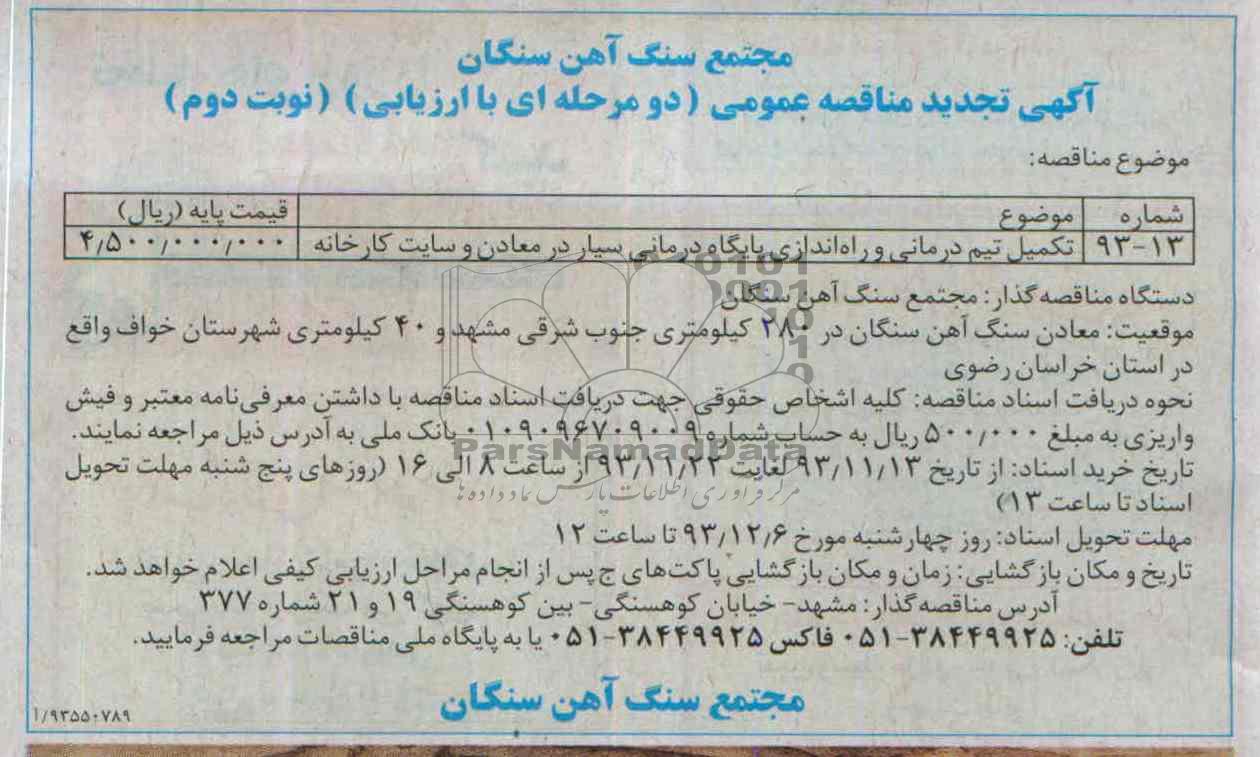 مجتمع سنگ آهن سنگان
آگهی تجدید مناقصه عمومی (دو مرحله ای با ارزیابی) (نوبت دوم)
موضوع مناقصه:
شماره موضوع قیمت پایه (ریال)
۹۳-۱۳ تکمیل تیم درمانی و راه‌اندازی پایگاه درمانی سیار در معادن و سایت کارخانه ۴٫۵۰۰٫۰۰۰٫۰۰۰
دستگاه مناقصه گذار: مجتمع سنگ آهن سنگان
موقعیت: معادن سنگ آهن سنگان در ۲۸۰ کیلومتری جنوب شرقی مشهد و ۴۰ کیلومتری شهرستان خواف واقع
در استان خراسان رضوی
نحوه دریافت اسناد مناقصه: کلیه اشخاص حقوقی جهت دریافت اسناد مناقصه با داشتن معرفی‌نامه معتبر و فیش
واریزی به مبلغ ۵۰۰٫۰۰۰ ریال به حساب شماره ۰۱۰۹۰۹۶۷۰۹۰۰۹ بانک ملی به آدرس ذیل مراجعه نمایند.
ParsNamadData
تاریخ خرید اسناد: از تاریخ ۹۳٫۱۱٫۱۳ لغایت ۹۳٫۱۱٫۲۳ از ساعت ۸ الی ۱۶ (روزهای پنج شنبه مهلت تحویل
مرکز فرآوری اطلاعات پارس نماد داده ها
اسناد تا ساعت ۱۳)
مهلت تحویل اسناد: روز چهارشنبه مورخ ۹۳٫۱۲٫۶ تا ساعت ۱۲
تاریخ و مکان بازگشایی: زمان و مکان بازگشایی پاکت‌های ج پس از انجام مراحل ارزیابی کیفی اعلام خواهد شد.
آدرس مناقصه گذار: مشهد- خیابان کوهسنگی- بین کوهسنگی ۱۹ و ۲۱ شماره ۳۷۷
تلفن: ۳۸۴۴۹۹۲۵-۰۵۱ فاکس ۳۸۴۴۹۹۲۵-۰۵۱ یا به پایگاه ملی مناقصات مراجعه فرمایید.
مجتمع سنگ آهن سنگان
۱/۹۳۵۵۰۷۸۹